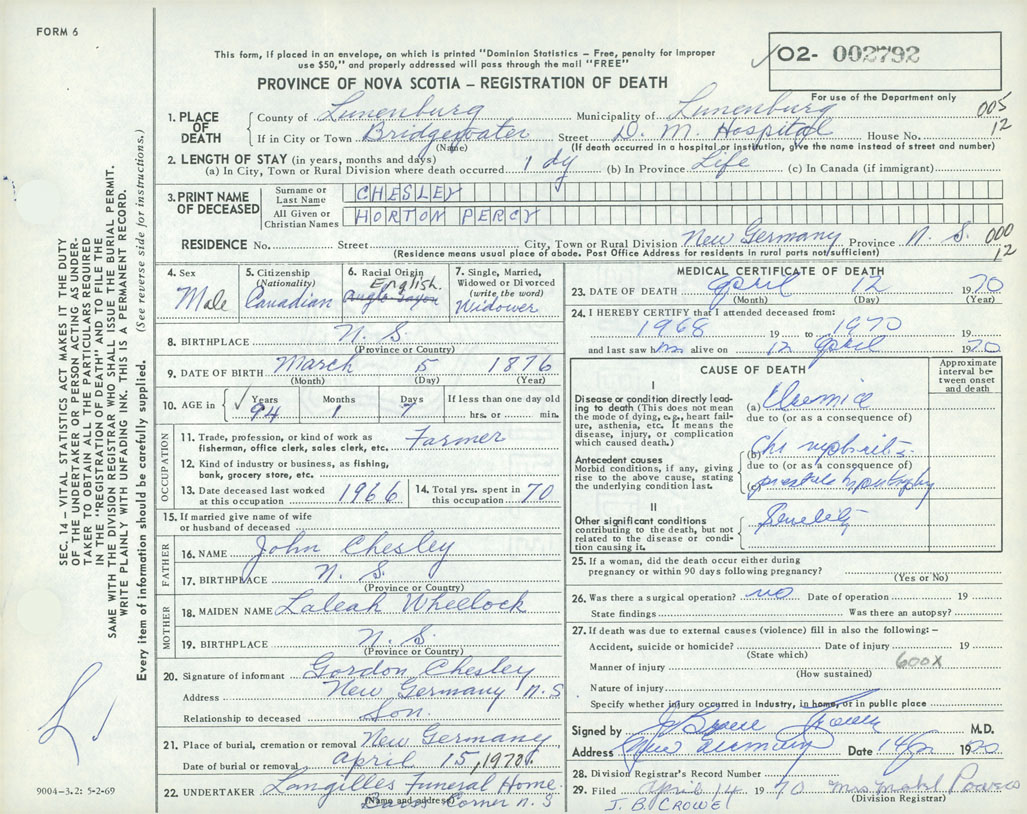 FORM 6
This form, if placed in an envelope, on which is printed "Dominion Statistics – Free, penalty for improper
use $50," and properly addressed will pass through the mail "FREE"
O2- 002792
PROVINCE OF NOVA SCOTIA – REGISTRATION OF DEATH
For use of the Department only
1. PLACE OF DEATH
County of Lunenburg Municipality of Lunenburg 005
If in City or Town Bridgewater Street D. M. Hospital House No. 12
(Name) (If death occurred in a hospital or institution, give the name instead of street and number)
2. LENGTH OF STAY (in years, months and days)
(a) In City, Town or Rural Division where death occurred 1 dy (b) In Province Life (c) In Canada (if immigrant)
3. PRINT NAME OF DECEASED
Surname or Last Name CHESLEY
All Given or Christian Names HORTON PERCY
RESIDENCE No. Street City, Town or Rural Division New Germany Province N. S. 000
(Residence means usual place of abode. Post Office Address for residents in rural parts not sufficient) 12
4. Sex Male
5. Citizenship (Nationality) Canadian
6. Racial Origin English. Anglo Saxon
7. Single, Married, Widowed or Divorced (write the word) Widower
8. BIRTHPLACE N. S.
(Province or Country)
9. DATE OF BIRTH March 5 1876
(Month) (Day) (Year)
10. AGE in ✓ Years Months Days If less than one day old
94 1 7 hrs. or min.
OCCUPATION
11. Trade, profession, or kind of work as fisherman, office clerk, sales clerk, etc. Farmer
12. Kind of industry or business, as fishing, bank, grocery store, etc.
13. Date deceased last worked at this occupation 1966
14. Total yrs. spent in this occupation 70
15. If married give name of wife or husband of deceased
FATHER
16. NAME John Chesley
17. BIRTHPLACE N. S.
(Province or Country)
MOTHER
18. MAIDEN NAME Laleah Wheelock
19. BIRTHPLACE N. S.
(Province or Country)
20. Signature of informant Gordon Chesley
Address New Germany N. S
Relationship to deceased Son.
21. Place of burial, cremation or removal New Germany
Date of burial or removal April 15, 1970.
22. UNDERTAKER Langilles Funeral Home
(Name and address) Corner N. S
MEDICAL CERTIFICATE OF DEATH
23. DATE OF DEATH April 12 1970
(Month) (Day) (Year)
24. I HEREBY CERTIFY that I attended deceased from:
1968 19 to 1970 19
and last saw him alive on 12 April 1970
CAUSE OF DEATH
Approximate interval between onset and death
I
Disease or condition directly leading to death (This does not mean the mode of dying, e.g., heart failure, asthenia, etc. It means the disease, injury, or complication which caused death.)
(a) Uremia
due to (or as a consequence of)
Antecedent causes
Morbid conditions, if any, giving rise to the above cause, stating the underlying condition last.
(b) Chr nephritis
due to (or as a consequence of)
(c) prostate hypertrophy
II
Other significant conditions contributing to the death, but not related to the disease or condition causing it.
Senility
25. If a woman, did the death occur either during pregnancy or within 90 days following pregnancy?
(Yes or No)
26. Was there a surgical operation? no Date of operation 19
State findings Was there an autopsy?
27. If death was due to external causes (violence) fill in also the following: –
Accident, suicide or homicide? Date of injury 19
(State which)
Manner of injury 600X
(How sustained)
Nature of injury
Specify whether injury occurred in Industry, in home, or in public place
Signed by M.D.
Address New Germany Date 1970
28. Division Registrar's Record Number
29. Filed April 14 1970 Mrs Mabl
J. B. CROWE (Division Registrar)
SEC. 14 – VITAL STATISTICS ACT MAKES IT THE DUTY
OF THE UNDERTAKER OR PERSON ACTING AS UNDER-
TAKER TO OBTAIN ALL THE PARTICULARS REQUIRED
IN THE "REGISTRATION OF DEATH" AND TO FILE THE
SAME WITH THE DIVISION REGISTRAR WHO SHALL ISSUE THE BURIAL PERMIT.
WRITE PLAINLY WITH UNFADING INK. THIS IS A PERMANENT RECORD.
Every item of information should be carefully supplied. (See reverse side for instructions.)
9004-3.2: 5-2-69